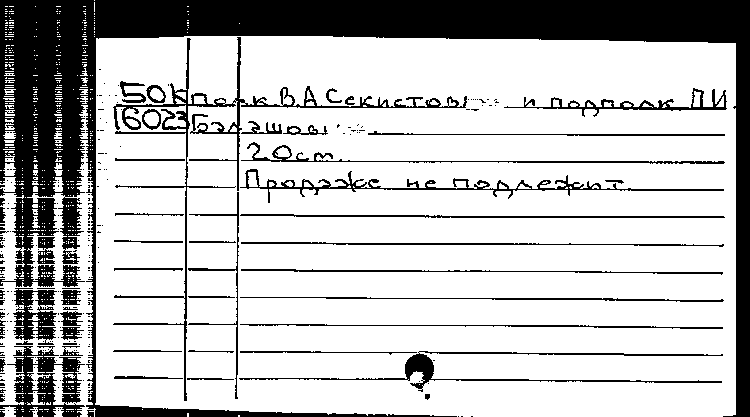 50К полк В.А Секистовы и подполк П.И.
16023 Балашовы
20 cm.
Продаже не подлежит